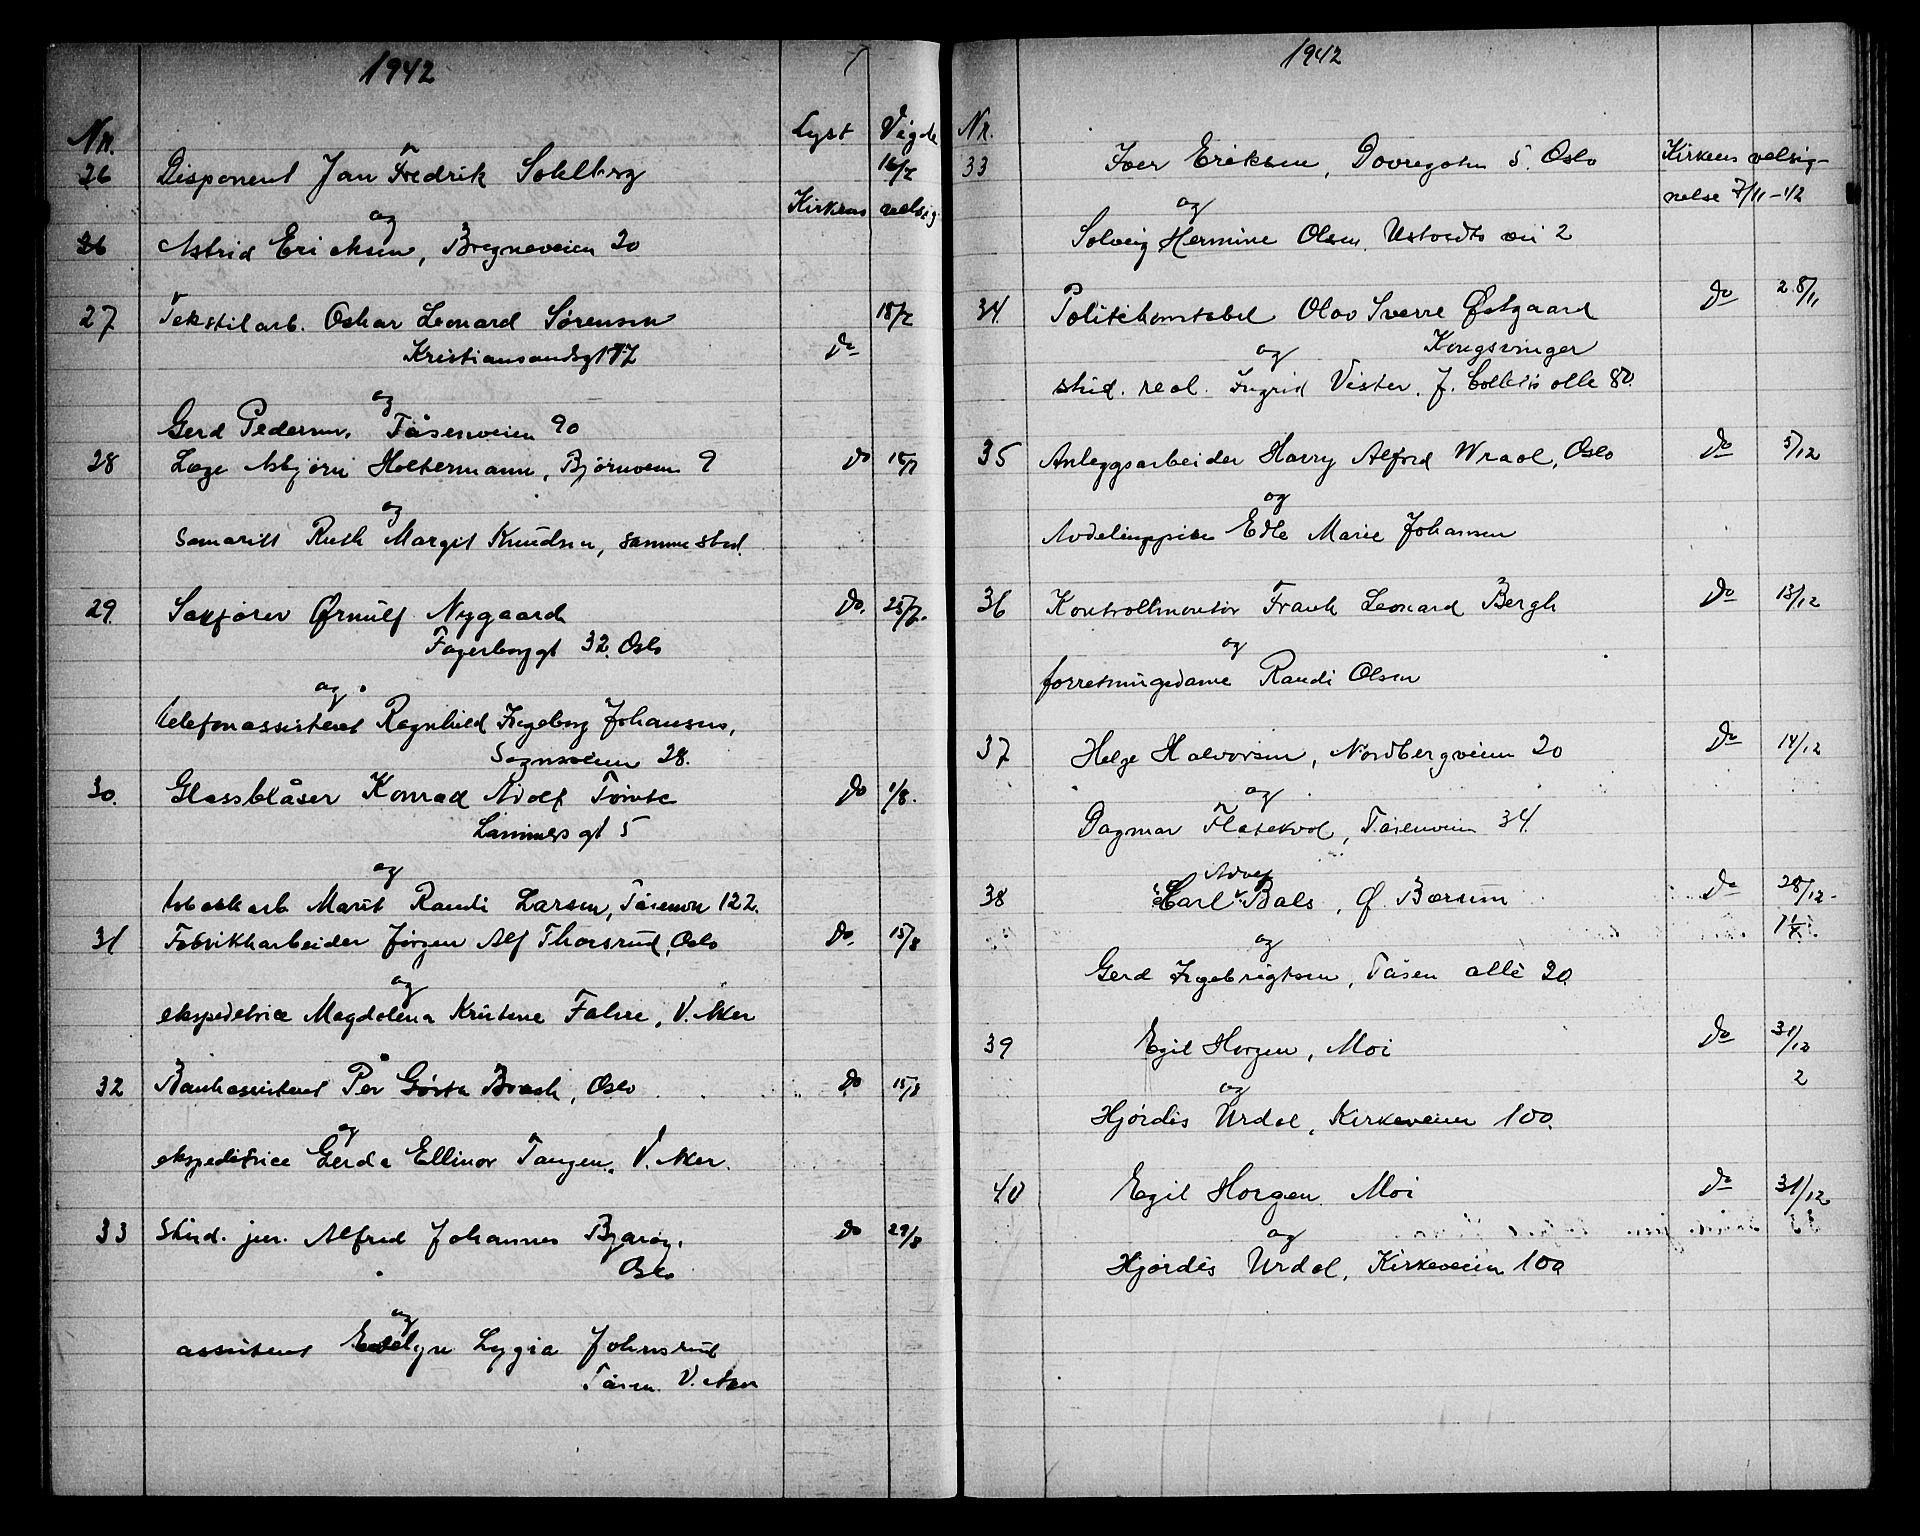 1942
Nr. Lyst Vigde
26 Disponent Jan Fredrik Sohlberg 16/7
og Kirkens velsig.
26 Astrid Ericksen, Bregneveien 20
27 Tekstilarb. Oskar Leonard Sørensen 18/7
Kristiansandsgt do
og
Gerd Pedersen, Tåsenveien 90
28 Læge Asbjørn Holtermann, Bjørnveien 9 do 18/7
og
Samaritt Ruth Margit Knudsen, samme sted.
29. Sakfører Ørnulf Nygaard do. 25/7.
Fagerborggt 32. Oslo
og
telefonassistent Ragnhild Ingeborg Johansen,
Sognsveien 28.
30. Glassblåser Konrad Adolf do 1/8.
Lammers gt 5
og
Marit Randi Larsen, 122.
31 Fabrikkarbeider Jørgen Alf Thorsrud, Oslo do. 15/8
og
ekspeditrice Magdalena Kristine V. Aker
32 Bankassistent Per Gösta Oslo do 15/8
og
ekspeditrice Gerda Ellinor Tangen, V. Aker.
33 Stud. jur. Alfred Johannes do 29/8
Oslo
og
assistent Evelyn Lygia Johnsrud
Tåsen. V. Aker
1942
Nr.
33 Iver Eriksen, Dovregaten 5. Oslo Kirkens velsig-
og nelse 7/11-42
Solveig Hermine Olsen, vei 2
34. Politikonstabel Olav Sverre Østgaard do 28/11
og Kongsvinger
stud. real. Ingrid Vister, J. Colletts alle 80.
35 Anleggsarbeider Harry Alfred Oslo do 5/12
og
Edle Marie Johansen
36 Kontrollmontør Frank Leonard Bergh do 13/12
og
forretningsdame Randi Olsen
37 Helge Halvorsen, Nordbergveien 20 do 14/12
og
Dagmar Tåsenveien 34.
Adolf
38 Carl Bals, Ø. Bærum do 28/12.
og
Gerd Ingebrigtsen, Tåsen allè 20
39 Egil Horgen, Moi do 31/12
og 2
Hjørdis Urdal, Kirkeveien 100.
40 Egil Horgen Moi do 31/12
og
Hjørdis Urdal, Kirkeveien 100